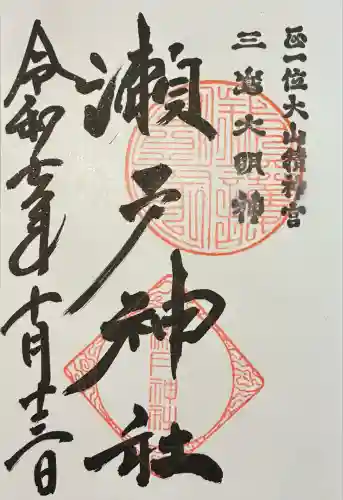 正一位大山積神宮
三嶌大明神
瀬戸神社
令和六年十月十三日